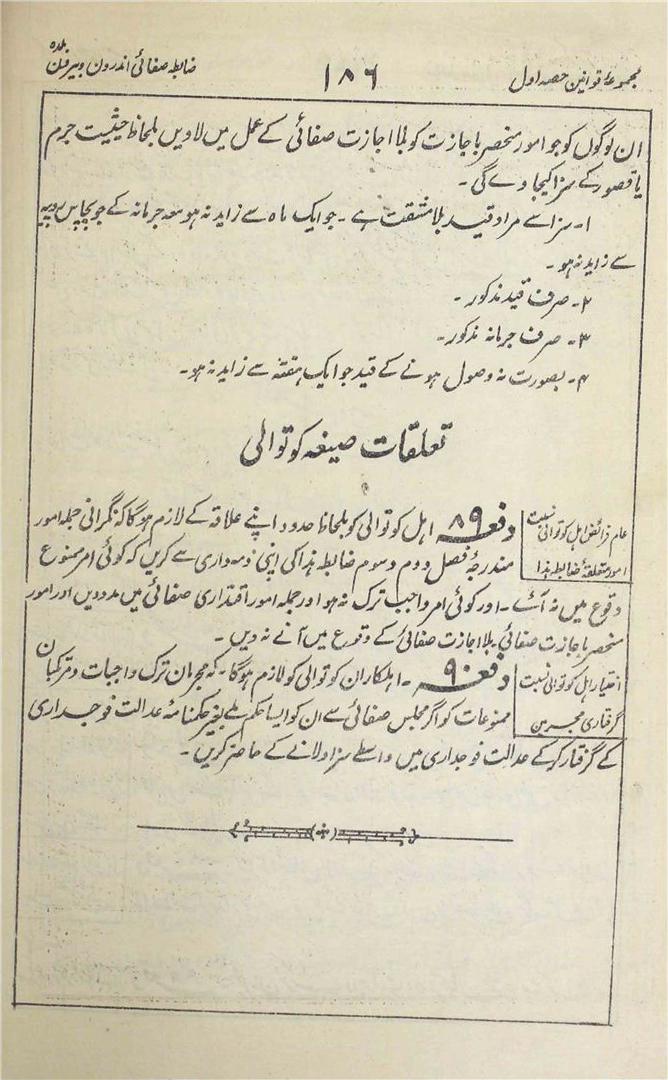 مجموعۂ قوانین حصہ اول
۱۸۶
ضابطہ صفائی اندرون و بیرون بلدہ
ان لوگوں کو جو امور منحصر باجازت کو بلا اجازت صفائی کے عمل میں لاویں بلحاظ حیثیت جرم
یا قصور کے سزا کیجاوے گی۔
۱۔ سزا سے مراد قید بلا مشقت ہے۔ جو ایک ماہ سے زاید نہ ہو معہ جرمانہ کے جو پچاس روپیہ
سے زاید نہ ہو۔
۲۔ صرف قید مذکور۔
۳۔ صرف جرمانہ مذکور۔
۴۔ بصورت نہ وصول ہونے کے قید جو ایک ہفتہ سے زاید نہ ہو۔
تعلقات صیغہ کوتوالی
عام فرائض اہل کوتوالی نسبت
امور متعلقۂ ضابطہ ہذا
دفعہ ۸۹ اہل کوتوالی کو بلحاظ حدود اپنے علاقہ کے لازم ہوگا کہ نگرانی جملہ امور
مندرجۂ فصل دوم و سوم ضابطہ ہذا کی اپنی ذمہ داری سے کریں کہ کوئی امر ممنوع
وقوع میں نہ آئے۔ اور کوئی امر واجب ترک نہ ہو اور جملہ امور اقتداری صفائی میں مدد دیں اور امور
منحصر باجازت صفائی۔ بلا اجازت صفائی کے وقوع میں آنے نہ دیں۔
اختیار اہل کوتوالی نسبت
گرفتاری مجرمین
دفعہ ۹۰۔ اہلکاران کوتوالی کو لازم ہوگا۔ کہ مجرمان ترک واجبات و مرتکبان
ممنوعات کو اگر مجلس صفائی سے ان کو ایسا حکم ملے بغیر حکمنامہ عدالت فوجداری
کے گرفتار کرکے عدالت فوجداری میں واسطے سزا دلانے کے حاضر کریں۔